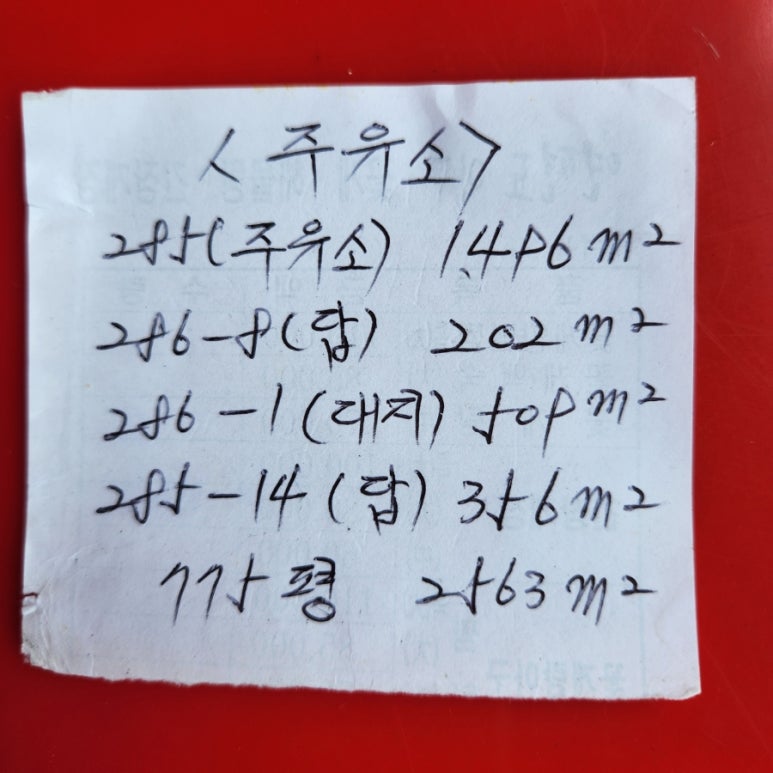 <주유소>
285(주유소) 1,496m²
286-8(답) 202m²
286-1(대지) 509m²
285-14(답) 356m²
775평 2563m²